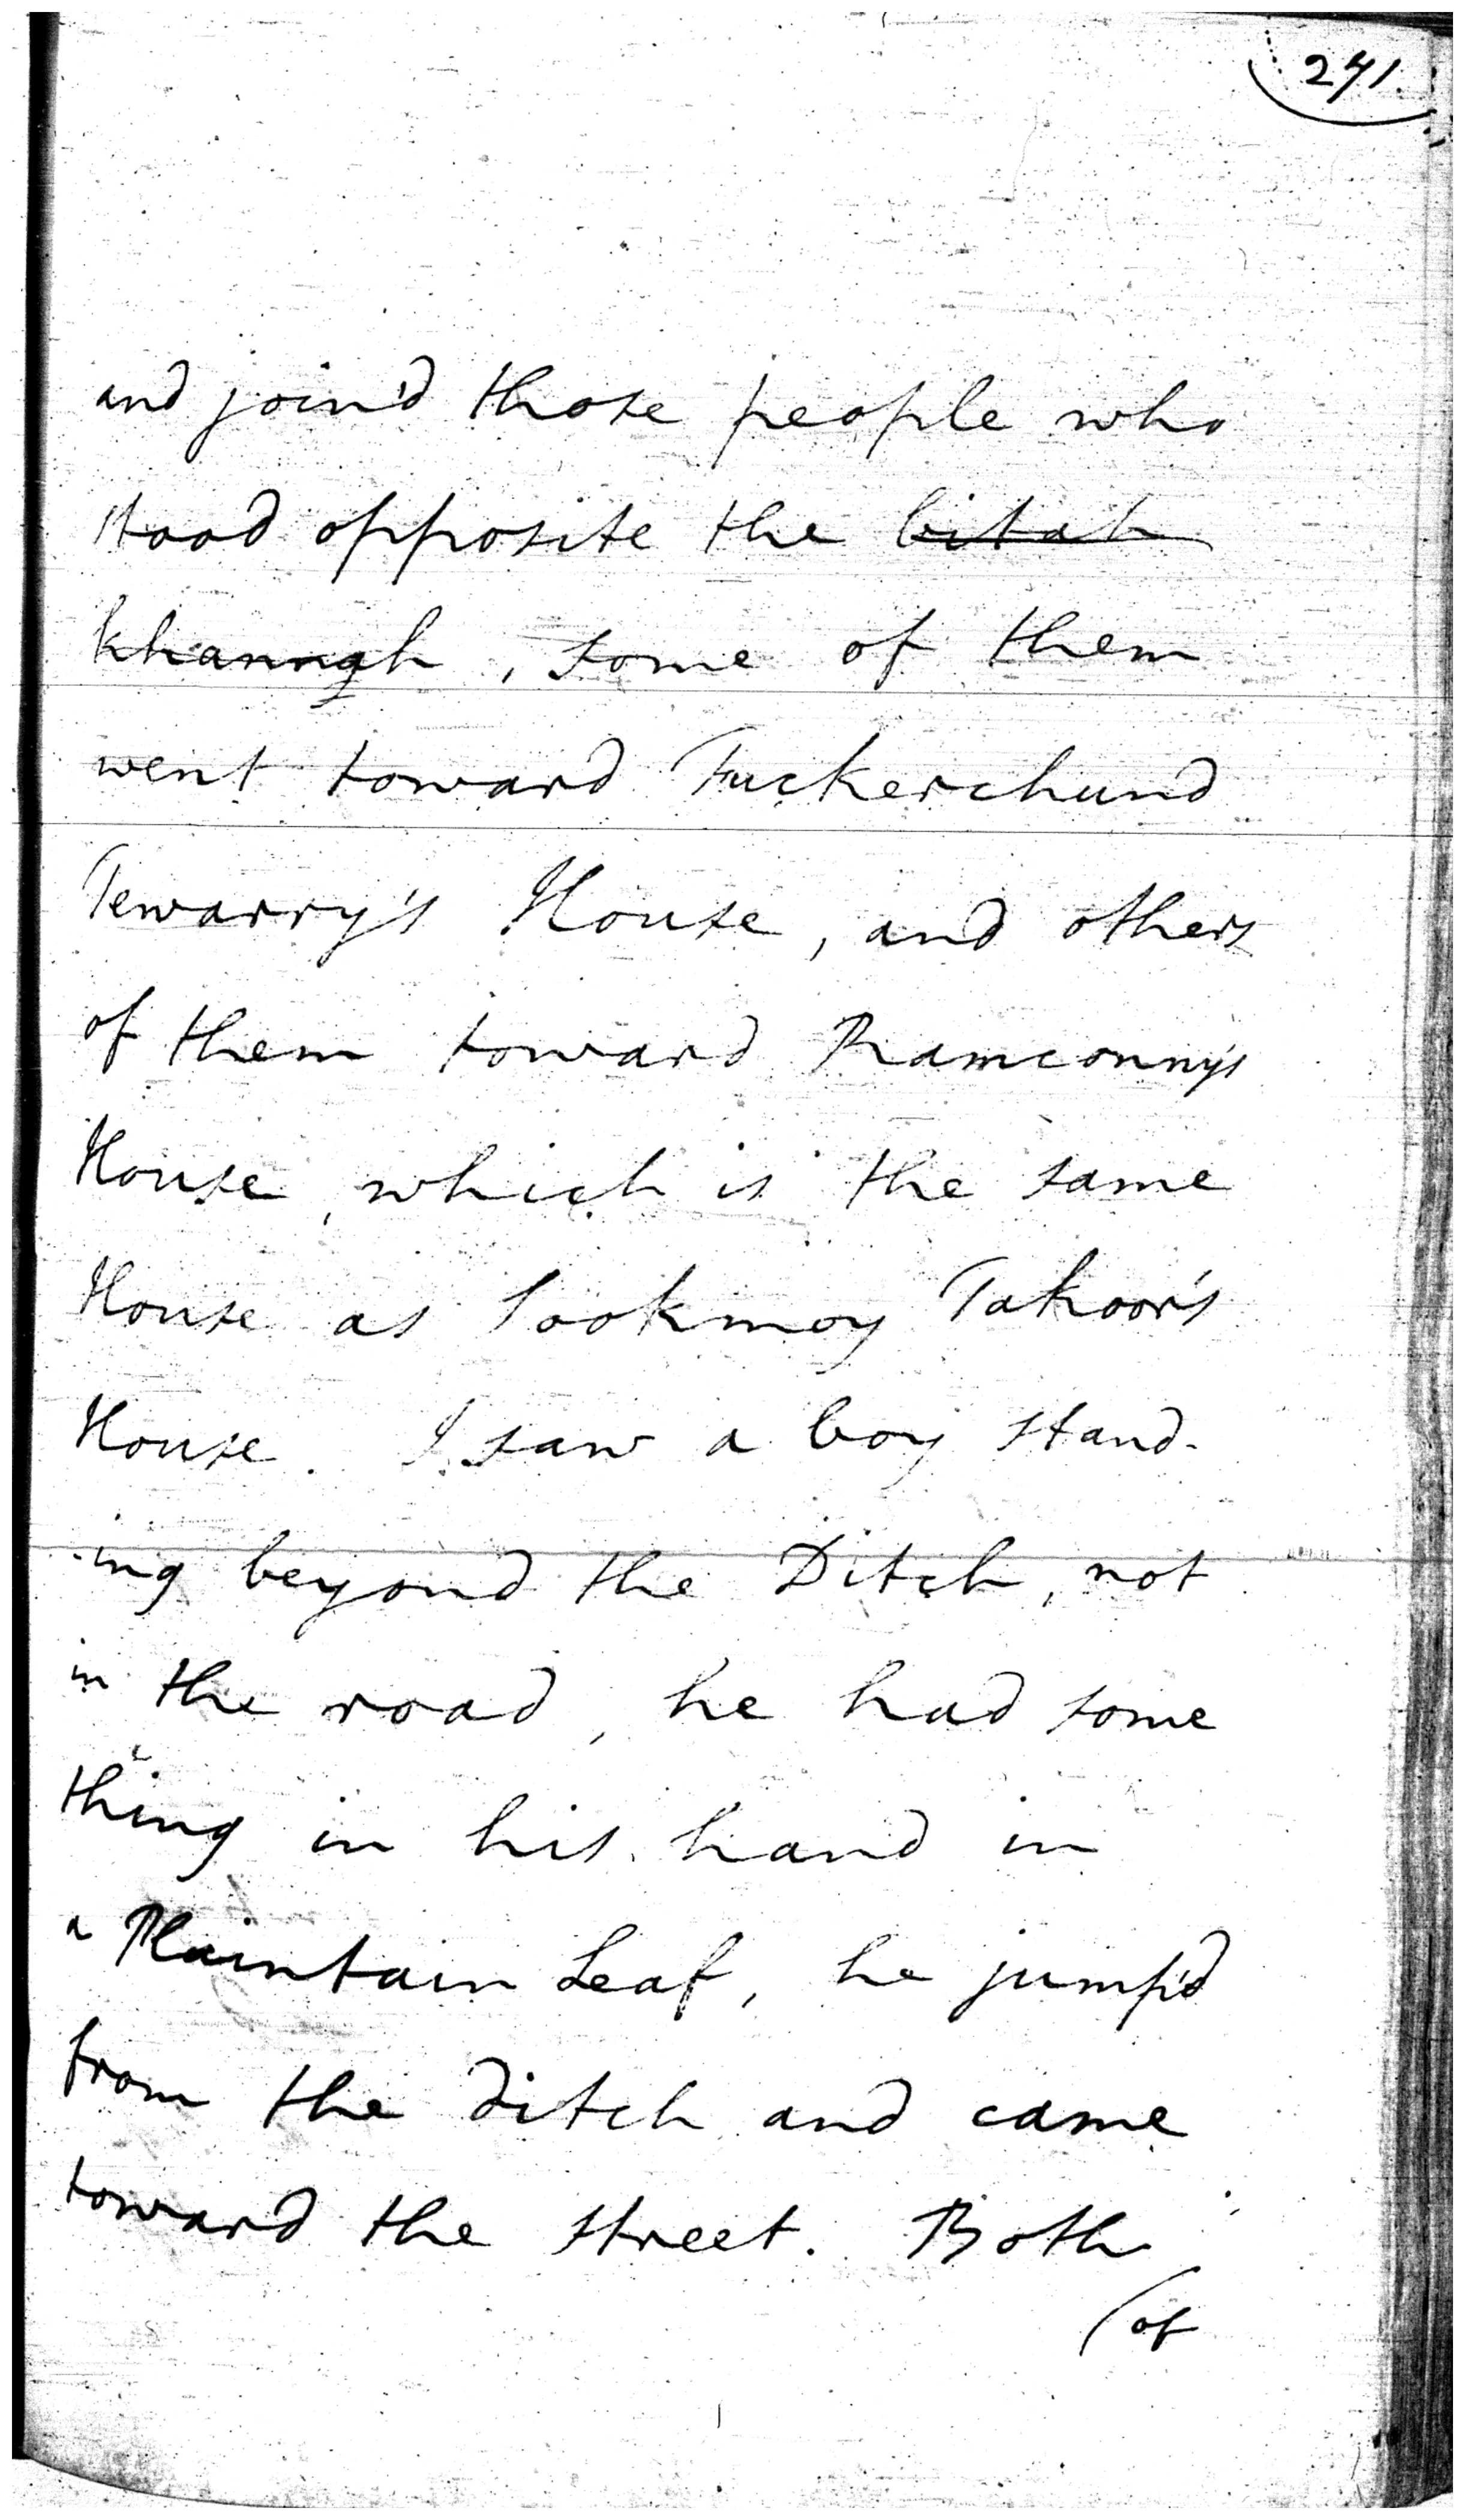 241.
and join'd those people who
stood opposite the bitah
khannah, some of them
went toward Tuckerchund
Tewarry's House, and others
of them toward Ramconny's
House, which is the same
House as Sookmoy Takoor's
House. I saw a boy stand-
ing beyond the Ditch, not
in the road, he had some
thing in his hand in
a Plaintain Leaf, he jump'd
from the ditch and came
toward the street. Both
(of